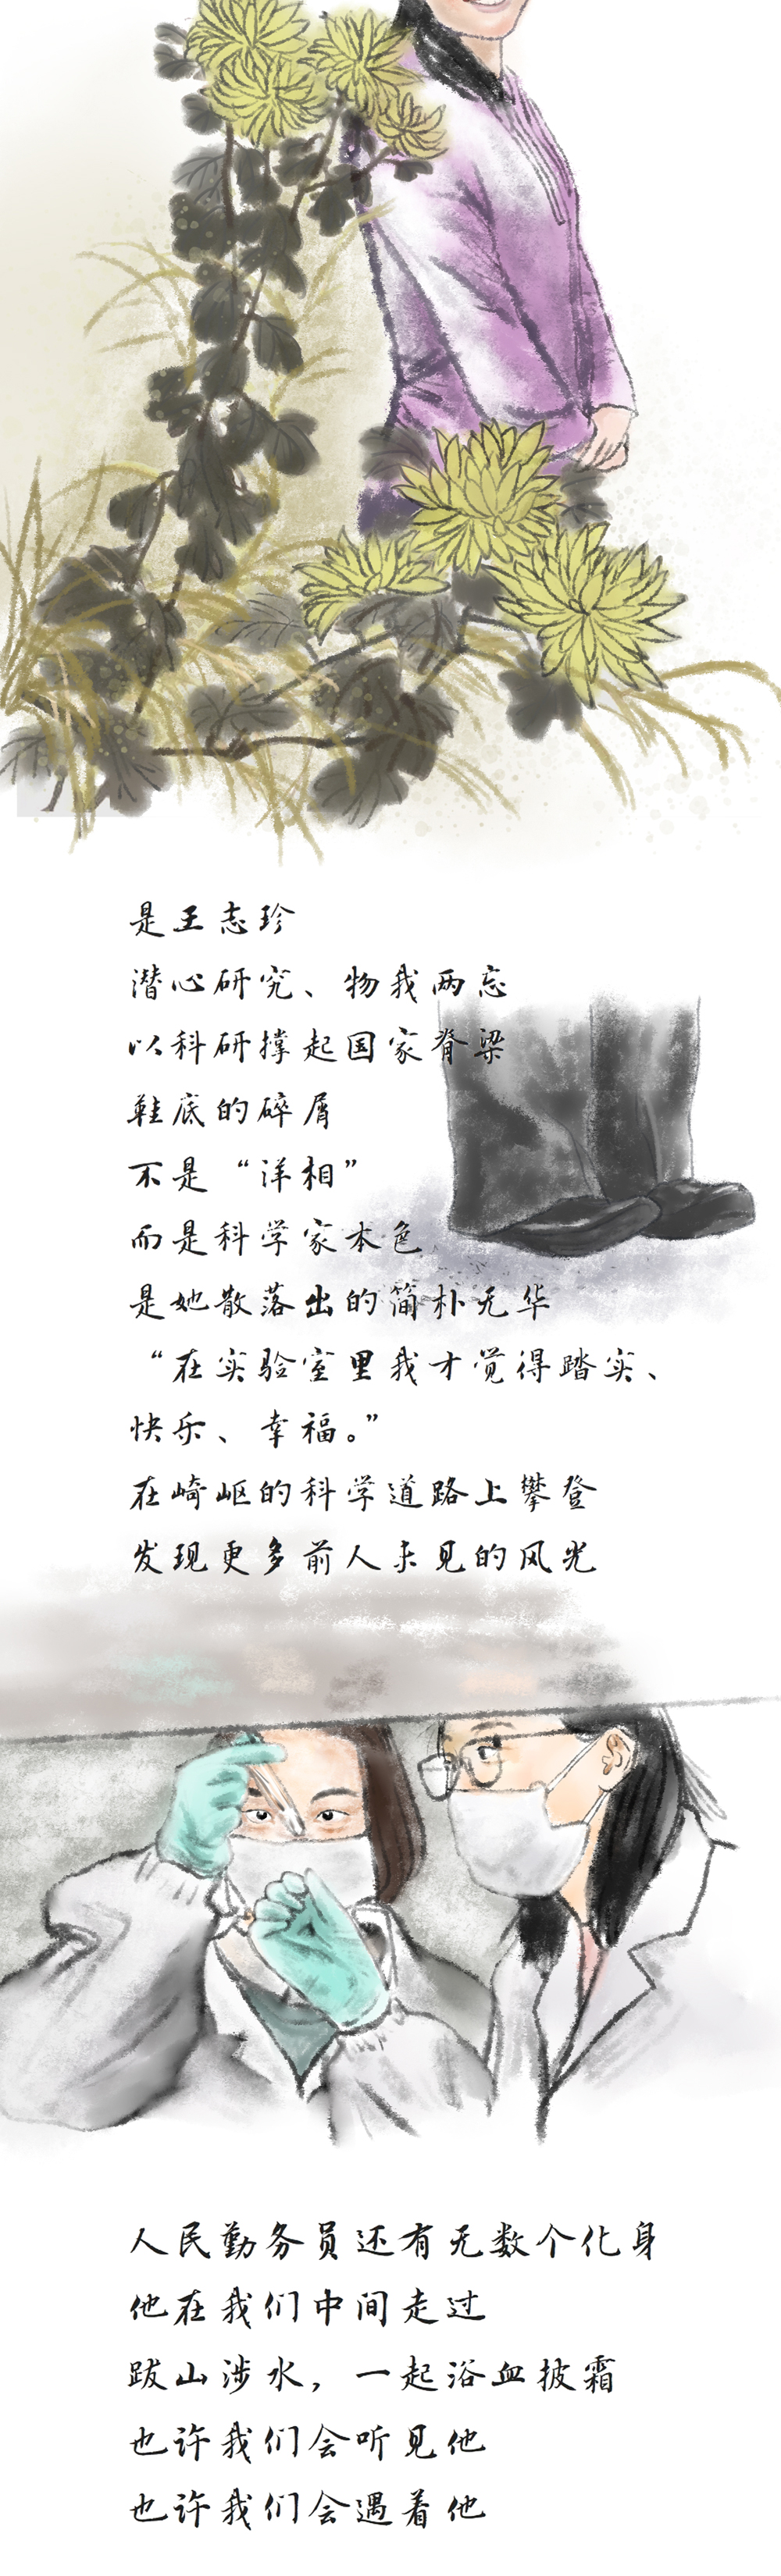 是王志珍
潜心研究、物我两忘
以科研撑起国家脊梁
鞋底的碎屑
不是“洋相”
而是科学家本色
是她散落出的简朴无华
“在实验室里我才觉得踏实、
快乐、幸福。”
在崎岖的科学道路上攀登
发现更多前人未见的风光
人民勤务员还有无数个化身
他在我们中间走过
跋山涉水，一起浴血披霜
也许我们会听见他
也许我们会遇着他